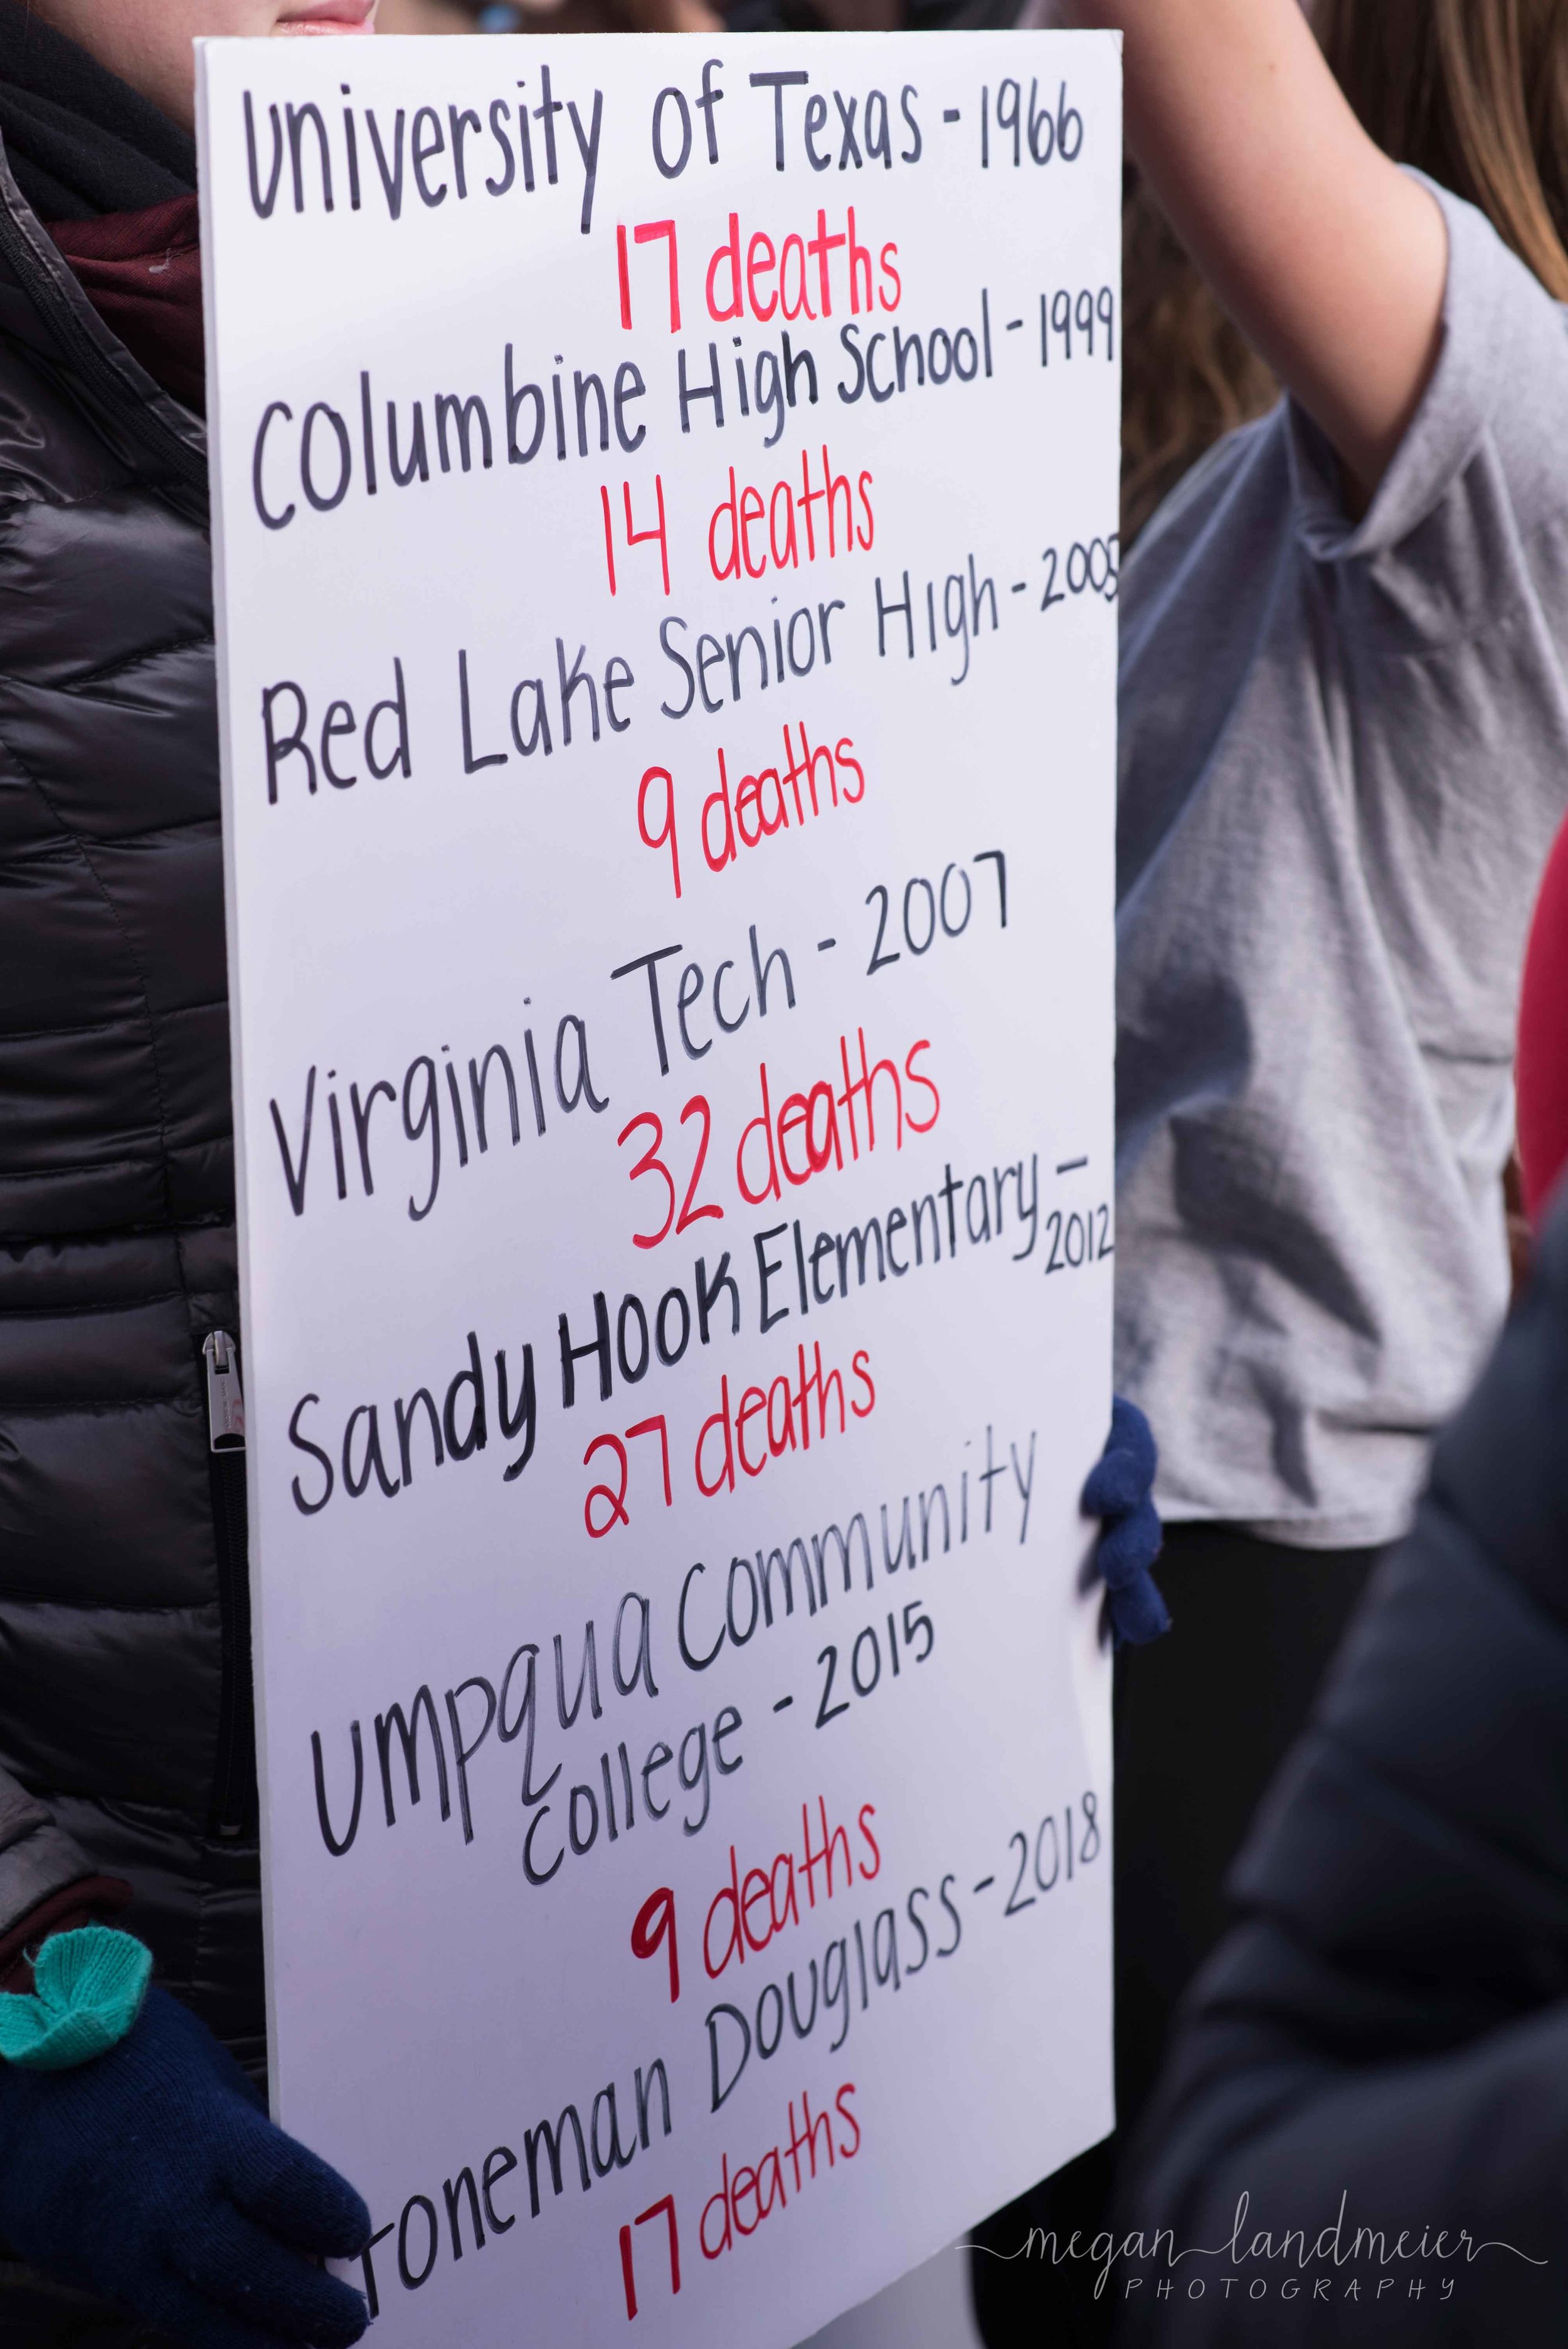 University of Texas - 1966
17 deaths
Columbine High School - 1999
14 deaths
Red Lake Senior High - 2005
9 deaths
Virginia Tech - 2007
32 deaths
Sandy Hook Elementary -
2012
27 deaths
Umpqua Community
College - 2015
9 deaths
toneman Douglass - 2018
17 deaths
megan landmeier
PHOTOGRAPHY